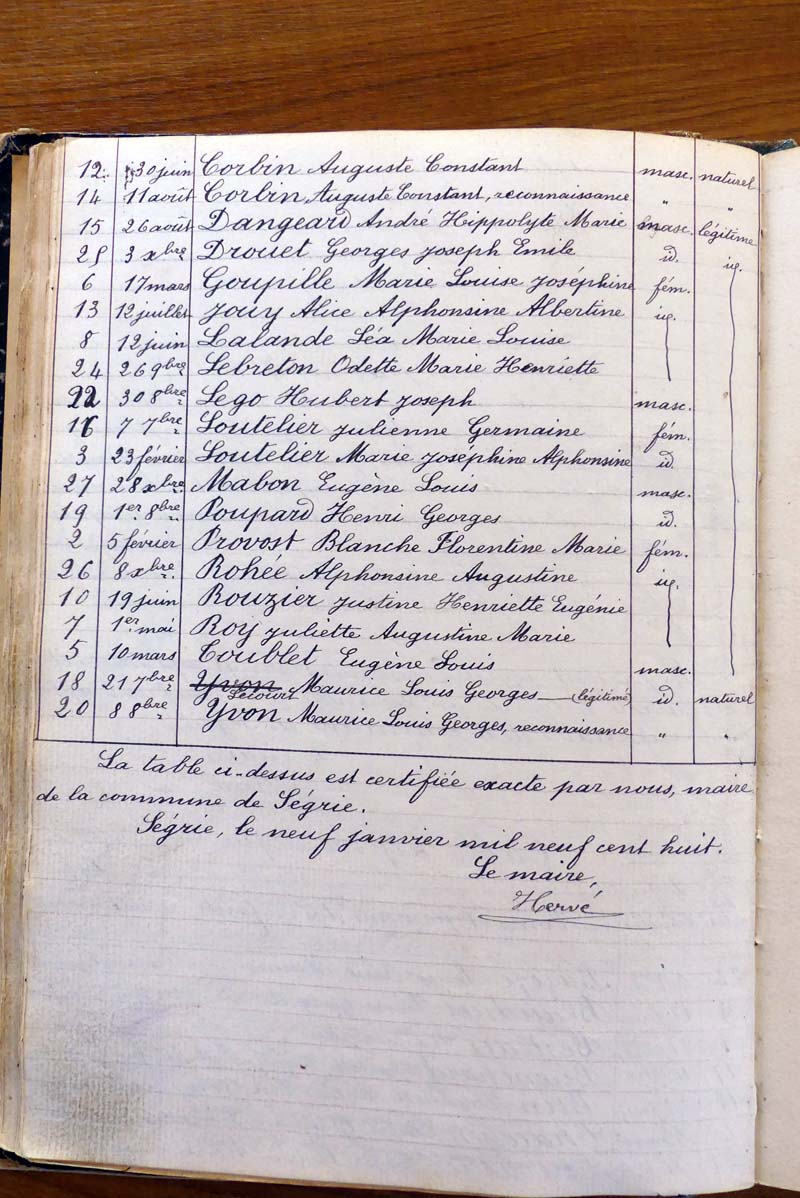 12. 30 juin Corbin Auguste Constant masc. naturel
14 11 août Corbin Auguste Constant, reconnaissance " "
15 26 août Dangeard André Hippolyte Marie masc. légitime
25 3 xbre Drouet Georges Joseph Emile id. id.
6 17 mars Goupille Marie Louise Joséphine fém.
13 12 juillet Jouy Alice Alphonsine Albertine id.
8 12 juin Lalande Léa Marie Louise
24 26 9bre Lebreton Odette Marie Henriette
22 30 8bre Lego Hubert Joseph masc.
7 7bre Loutelier Julienne Germaine fém.
3 23 février Loutelier Marie Joséphine Alphonsine id.
27 28 xbre Mabon Eugène Louis masc.
19 1er 8bre Poupard Henri Georges id.
2 5 février Provost Blanche Florentine Marie fém.
26 8 xbre Rohée Alphonsine Augustine id.
10 19 juin Rouzier Justine Henriette Eugénie
7 1er mai Roy Juliette Augustine Marie
5 10 mars Toublet Eugène Louis masc.
18 21 7bre Yvon Maurice Louis Georges (légitimé) id. naturel
Lecourt
20 8 8bre Yvon Maurice Louis Georges, reconnaissance " "
La table ci-dessus est certifiée exacte par nous, maire
de la commune de Ségrie.
Ségrie, le neuf janvier mil neuf cent huit.
Le maire,
Hervé